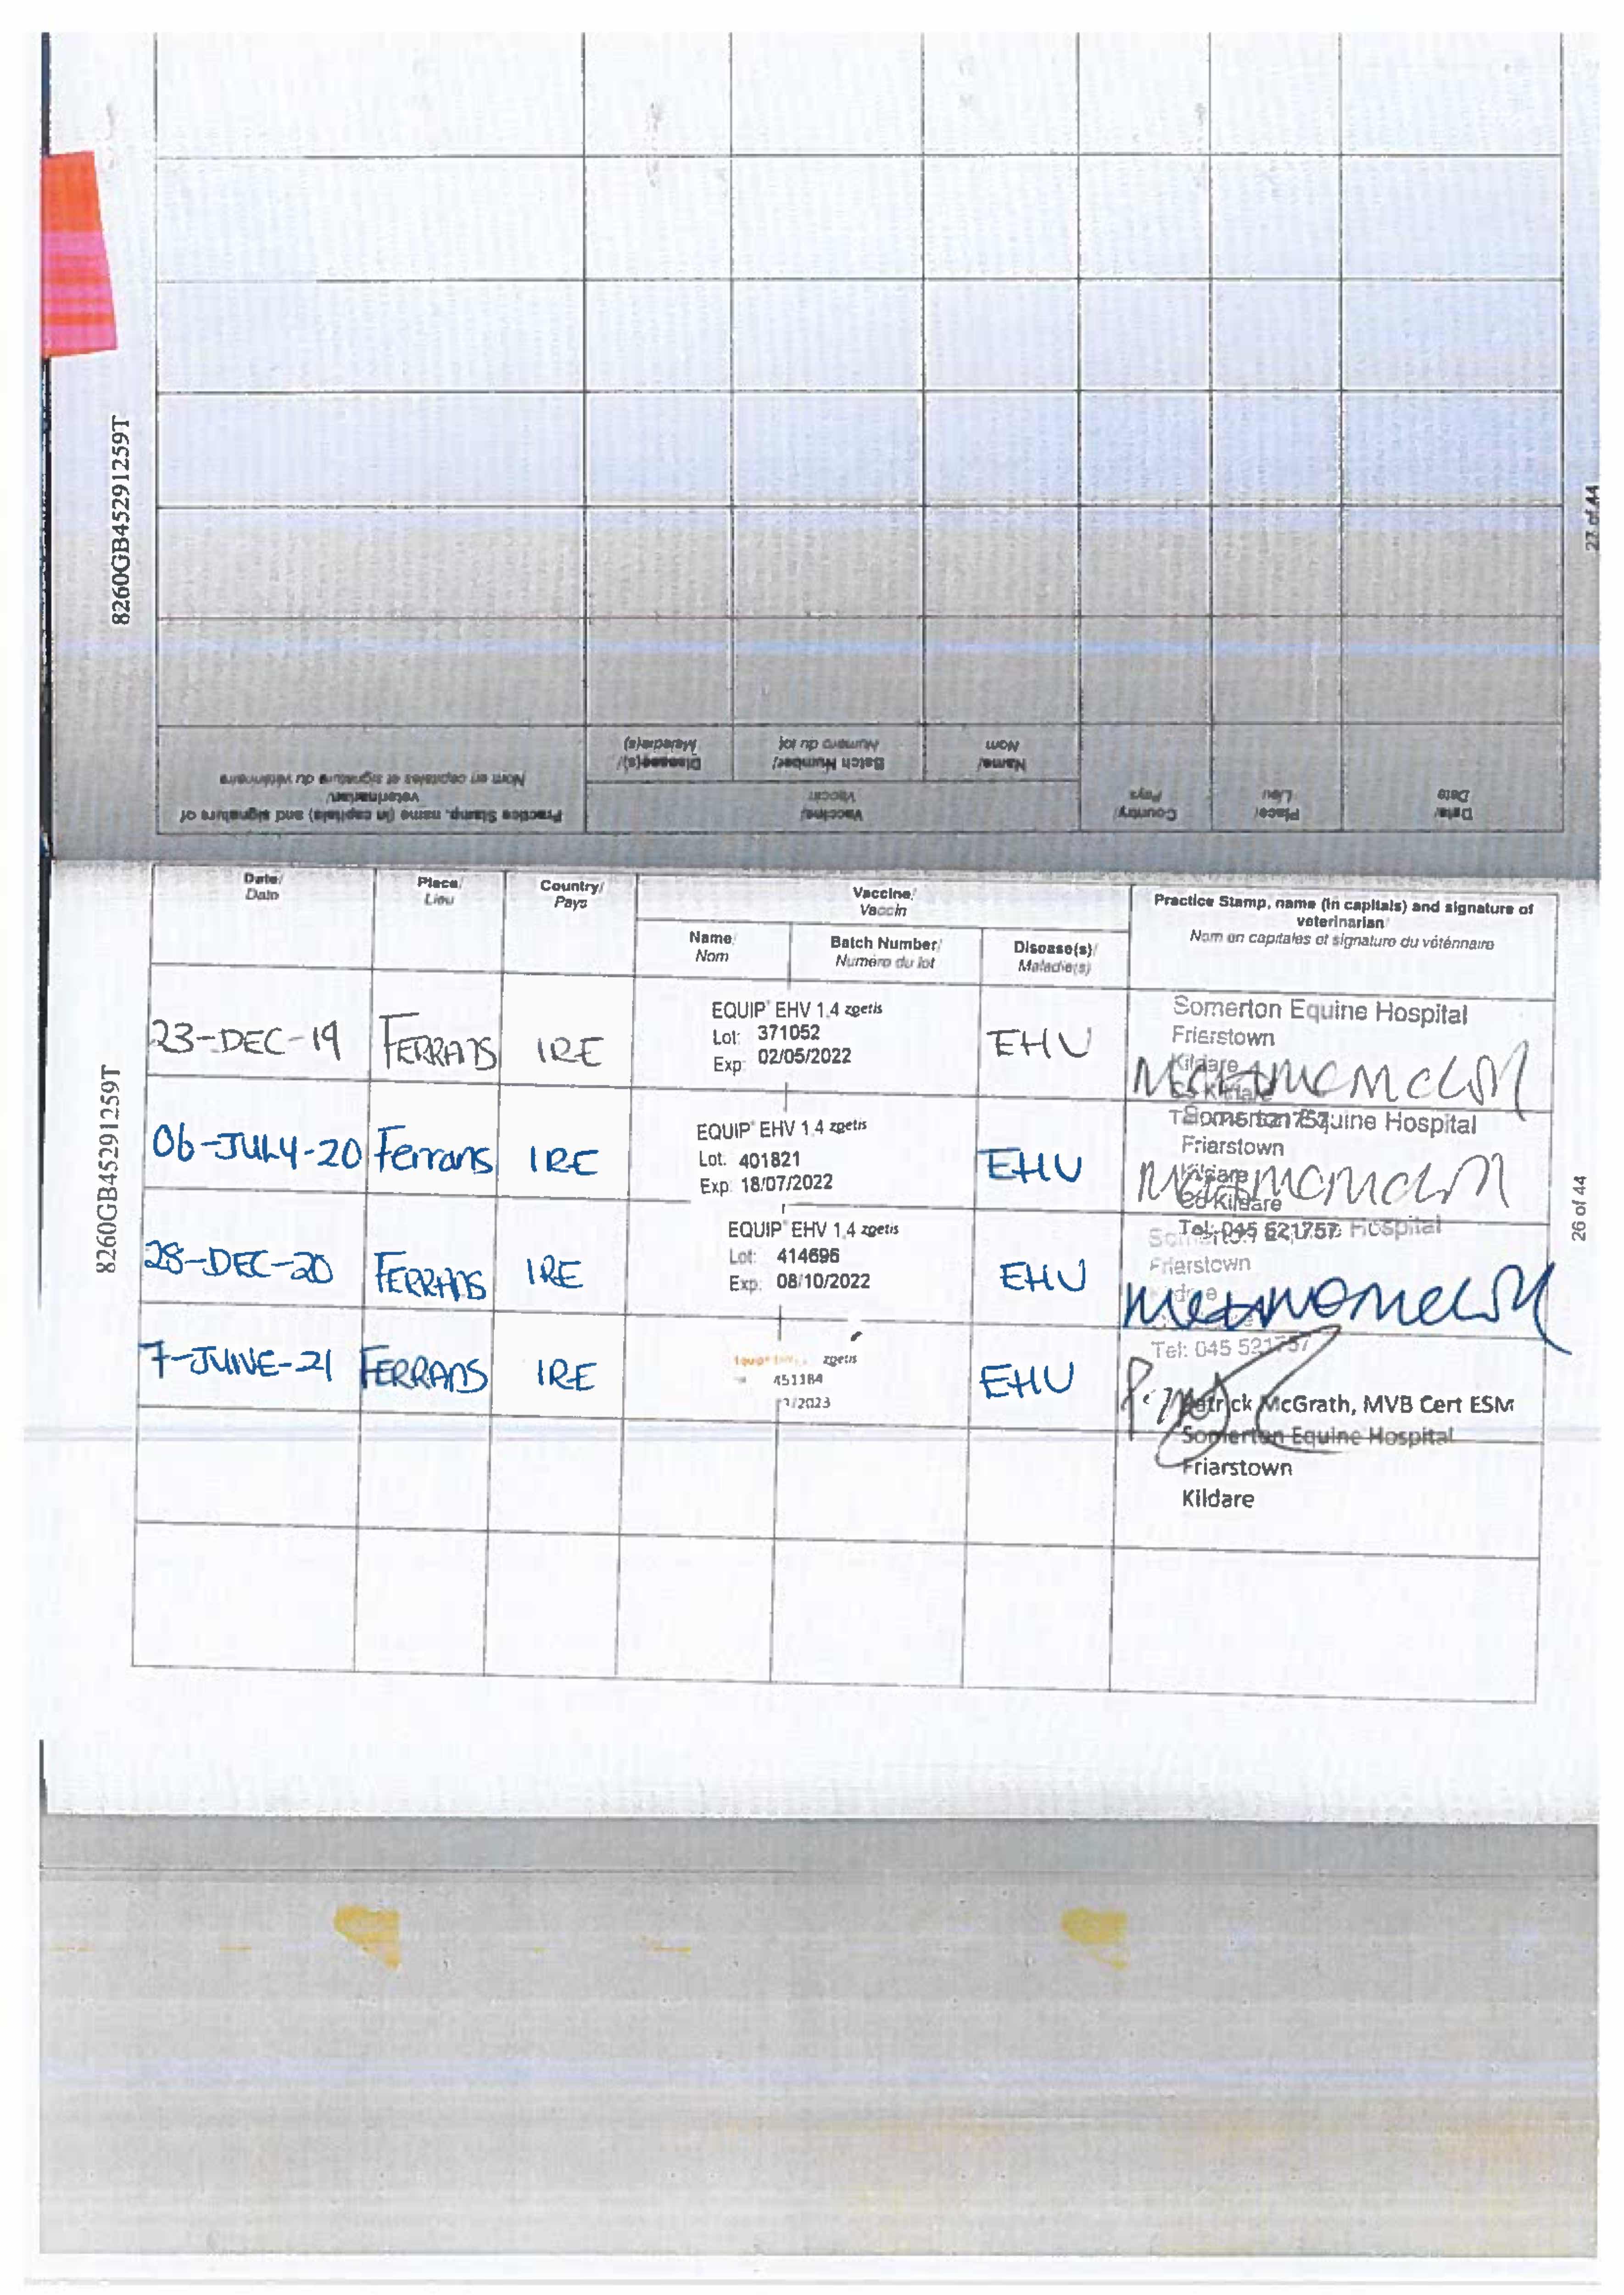 8260GB45291259T
27 of 44
Date/ Date
Place/ Lieu
Country/ Pays
Vaccine/ Vaccin
Name/ Nom
Batch Number/ Numéro du lot
Disease(s)/ Maladie(s)
Practice Stamp, name (in capitals) and signature of
veterinarian/
Nom en capitales et signature du vétérinaire
Date/ Date
Place/ Lieu
Country/ Pays
Vaccine/ Vaccin
Name/ Nom
Batch Number/ Numéro du lot
Disease(s)/ Maladie(s)
Practice Stamp, name (in capitals) and signature of
veterinarian/
Nom en capitales et signature du vétérinaire
23-DEC-19 FERRANS IRE
EQUIP EHV 1,4 zoetis
Lot: 371052
Exp: 02/05/2022
EHV
Somerton Equine Hospital
Friarstown
Kildare
Co Kildare
06-JULY-20 Ferrans IRE
EQUIP EHV 1,4 zoetis
Lot: 401821
Exp: 18/07/2022
EHV
Somerton Equine Hospital
Friarstown
Kildare
Co Kildare
Tel: 045 521757
28-DEC-20 FERRANS IRE
EQUIP EHV 1,4 zoetis
Lot: 414696
Exp: 08/10/2022
EHV
Hospital
Friarstown
Tel: 045 521757
7-JUNE-21 FERRANS IRE
Equip zoetis
451184
/2023
EHV
Patrick McGrath, MVB Cert ESM
Somerton Equine Hospital
Friarstown
Kildare
8260GB45291259T
26 of 44